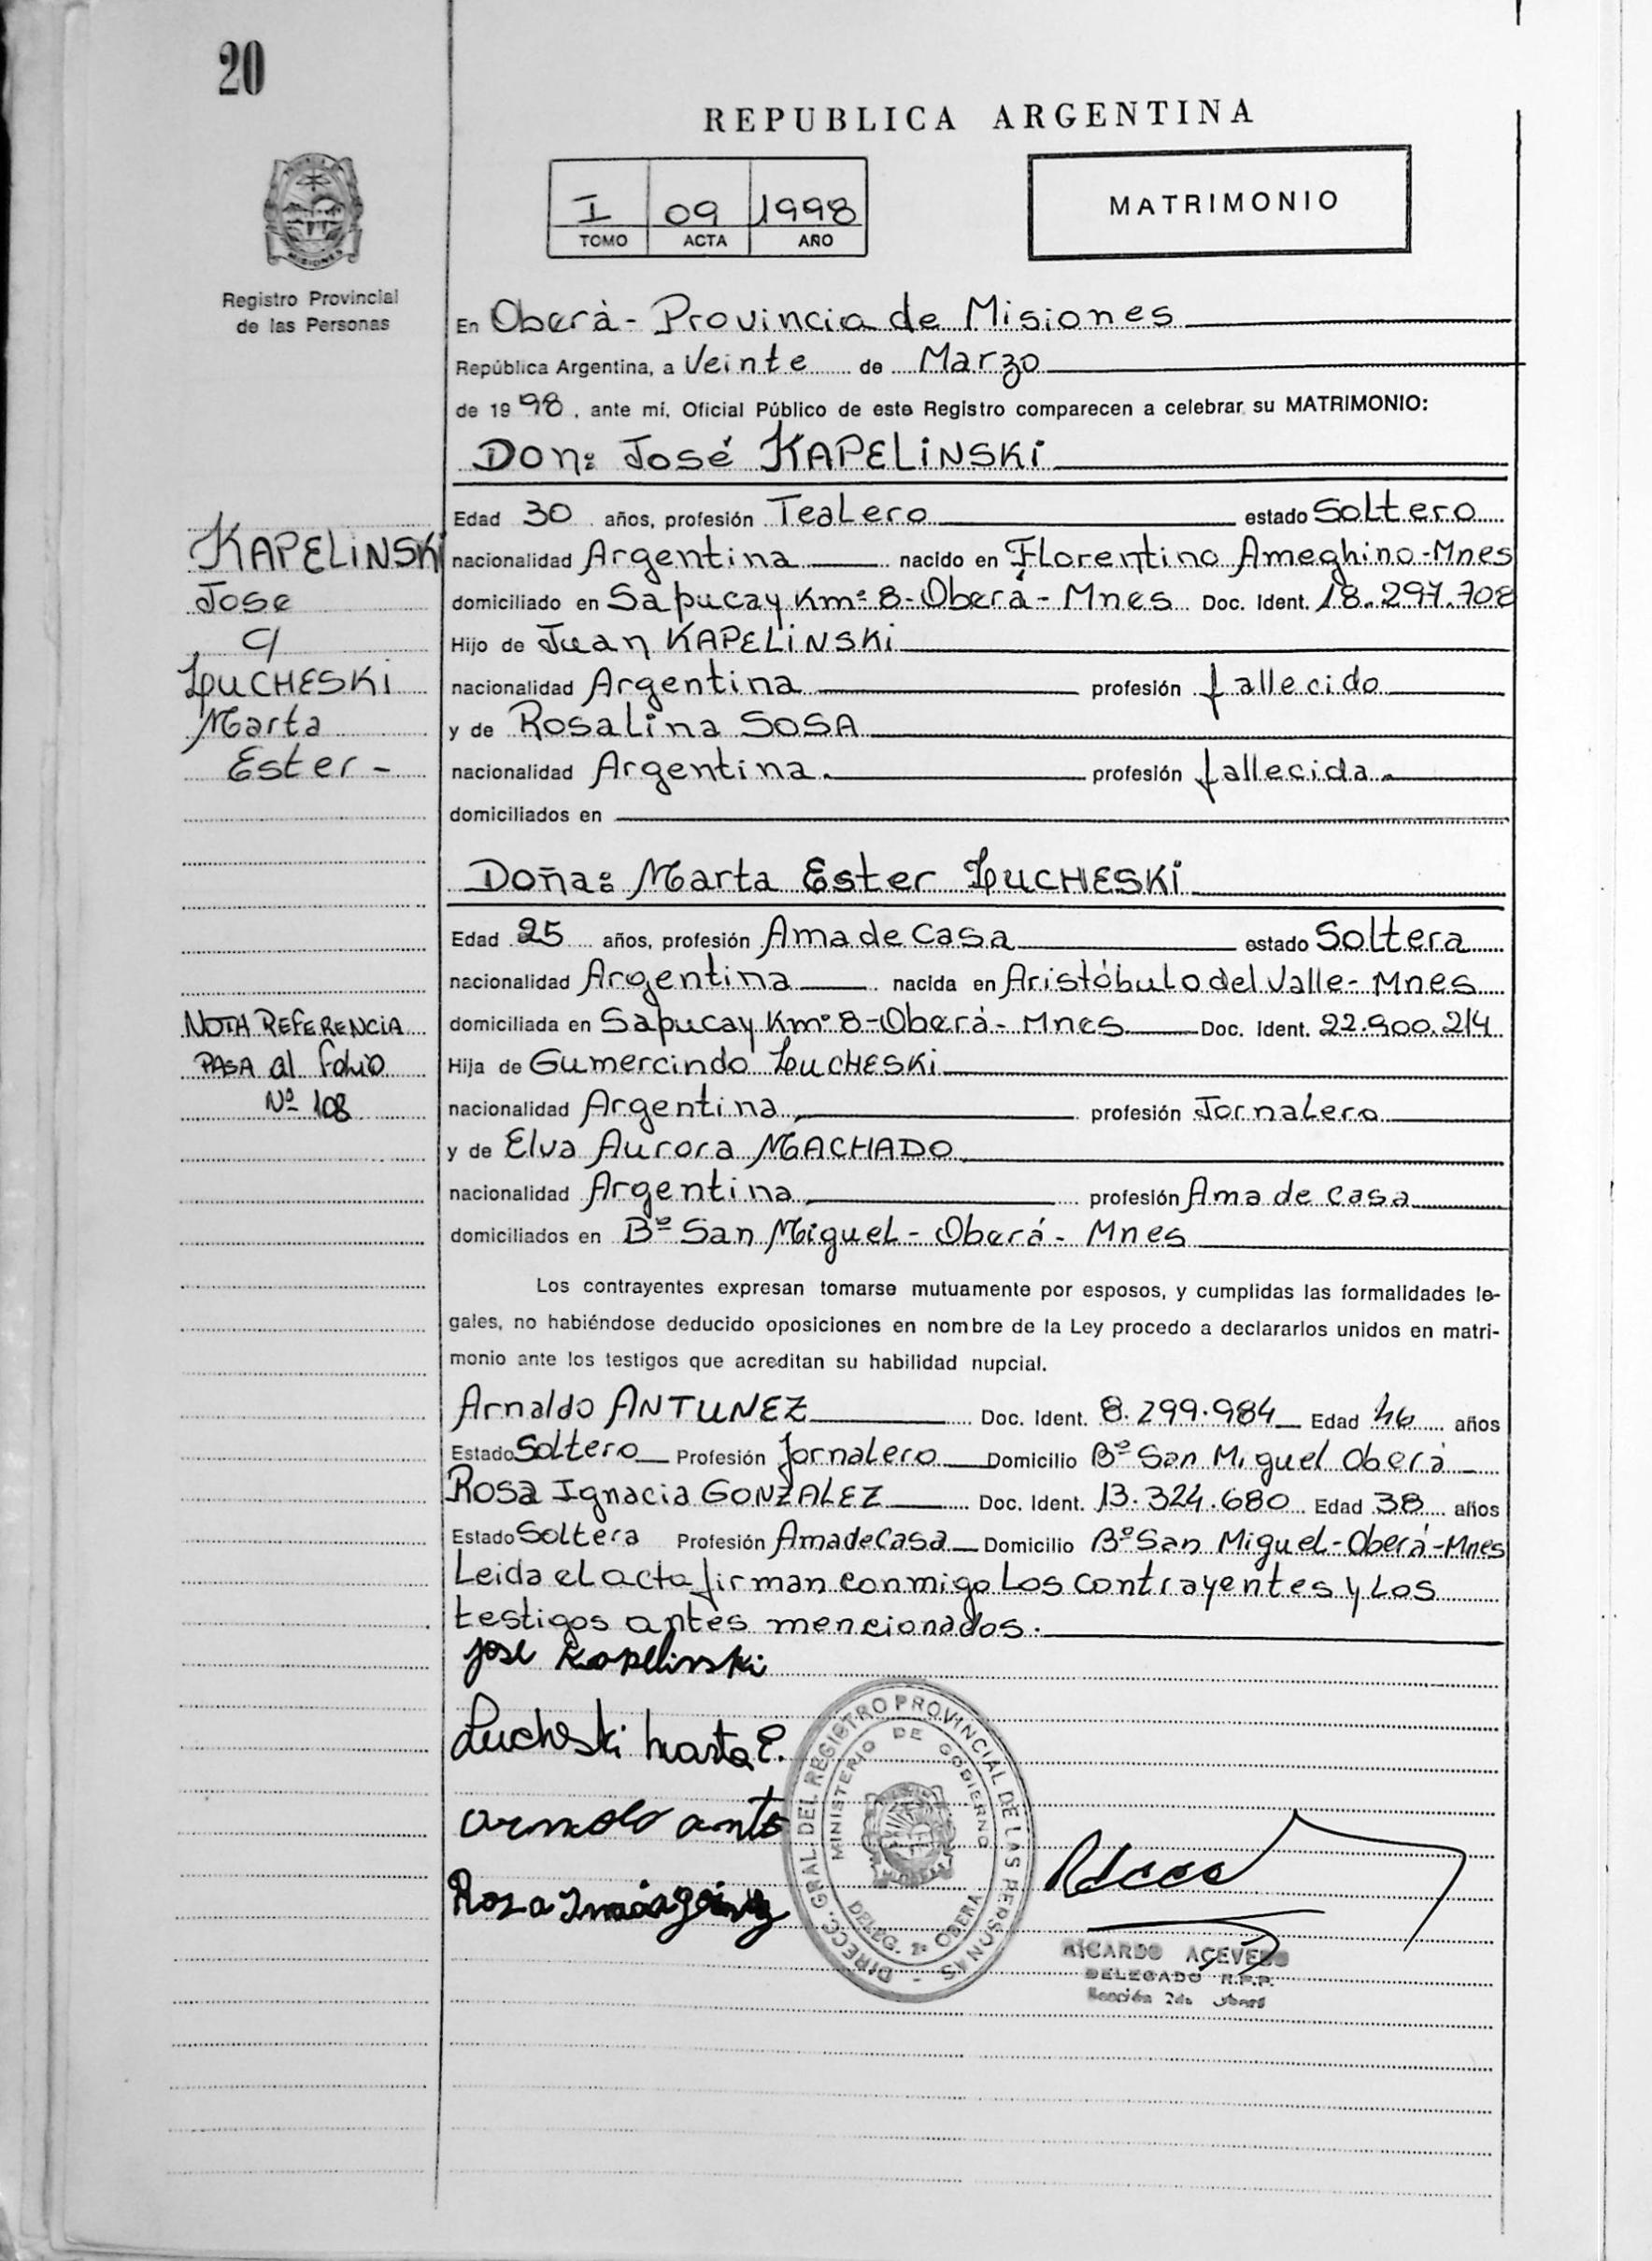 20
REPUBLICA ARGENTINA
I 09 1998
TOMO ACTA AÑO
MATRIMONIO
MISIONES
Registro Provincial
de las Personas
En Oberà - Provincia de Misiones
República Argentina, a Veinte de Marzo
de 1998, ante mí, Oficial Público de este Registro comparecen a celebrar su MATRIMONIO:
Don: José KAPELINSKI
Edad 30 años, profesión Tealero estado Soltero
nacionalidad Argentina nacido en Florentino Ameghino-Mnes
domiciliado en Sapucay Km: 8-Oberá-Mnes Doc. Ident. 18.297.708
Hijo de Juan KAPELINSKI
nacionalidad Argentina profesión fallecido
y de Rosalina SOSA
nacionalidad Argentina. profesión fallecida.
domiciliados en
Doña: Marta Ester LUCHESKI
Edad 25 años, profesión Ama de Casa estado Soltera
nacionalidad Argentina nacida en Aristóbulo del Valle-Mnes
domiciliada en Sapucay Km° 8-Oberá-Mnes Doc. Ident. 22.900.214
Hija de Gumercindo LUCHESKI
nacionalidad Argentina profesión Jornalero
y de Elva Aurora MACHADO
nacionalidad Argentina profesión Ama de casa
domiciliados en B° San Miguel - Oberá - Mnes
Los contrayentes expresan tomarse mutuamente por esposos, y cumplidas las formalidades le-
gales, no habiéndose deducido oposiciones en nombre de la Ley procedo a declararlos unidos en matri-
monio ante los testigos que acreditan su habilidad nupcial.
Arnaldo ANTUNEZ Doc. Ident. 8.299.984 Edad años
Estado Soltero Profesión Jornalero Domicilio B° San Miguel Oberá
Rosa Ignacia GONZALEZ Doc. Ident. 13.324.680 Edad 38 años
Estado Soltera Profesión Ama de Casa Domicilio B° San Miguel-Oberá-Mnes
Leida el acta firman conmigo Los contrayentes y Los
testigos antes mencionados.
KAPELINSKI
Jose
c/
LUCHESKI
Marta
Ester -
NOTA REFERENCIA
PASA al folio
Nº 108
Jose Kapelinski
Lucheski Marta E.
Rosa
DIRECC. GRAL. DEL REGISTRO PROVINCIAL DE LAS PERSONAS
MINISTERIO DE GOBIERNO
DELEG. 2ª OBERA
RICARDO ACEVEDO
DELEGADO R.P.P.
Sección 2da Oberá